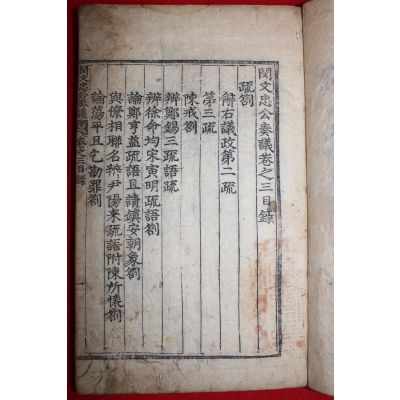 閔文忠公奏議卷之三目錄
疏劄
辭右議政第二疏
第三疏
陳戒劄
辨鄭錫三疏語疏
辨徐命均宋寅明疏語劄
論鄭亨益疏語且請鎭安朝象劄
與僚相聯名辨尹陽來疏語附陳所懷劄
論蕩平且乞勘罪劄
閔文忠公奏議 卷之三目錄 一